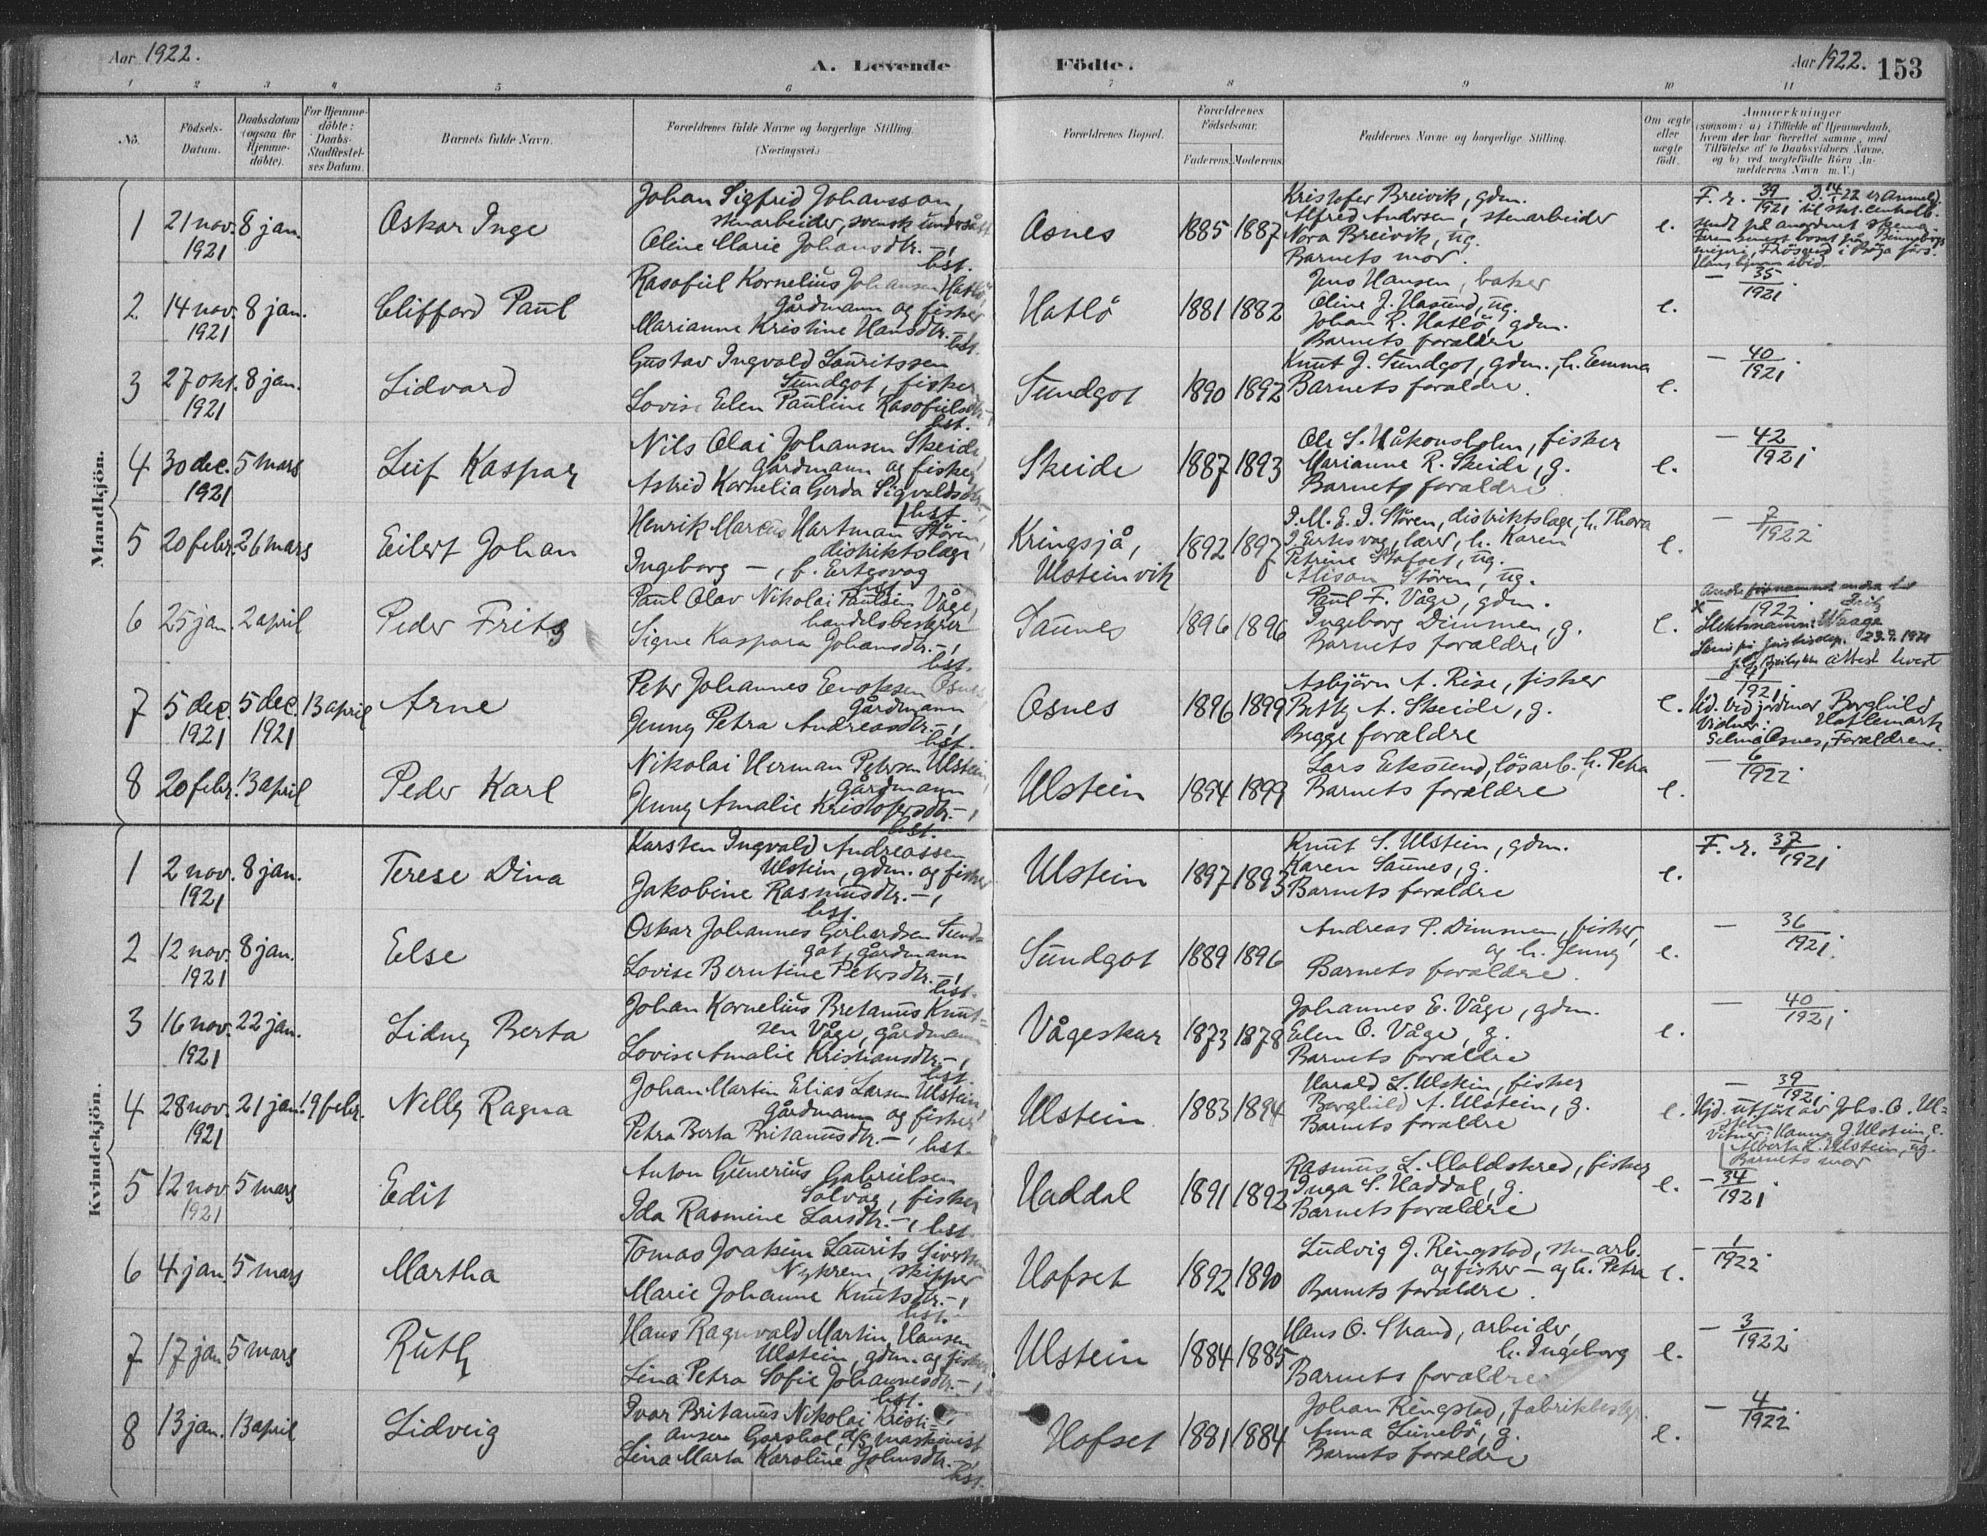 Aar 1922. A. Levende Födte. Aar 1922. 153
1 2 3 4 5 6 7 8 9 10 11
No. Födsels-Datum. Daabsdatum (ogsaa for Hjemme-döbte). For Hjemme-döbte: Daabs-Stadfæstel-ses Datum. Barnets fulde Navn. Forældrenes fulde Navne og borgerlige Stilling. (Næringsvei.) Forældrenes Bopæl. Forældrenes Födselsaar. Faderens. Moderens. Faddernes Navne og borgerlige Stilling. Om ægte eller uægte födt. Anmærkninger (saasom: a) i Tilfælde af Hjemmedaab, hvem der har forrettet samme, med Tilföielse af to Daabsvidners Navne, og b) ved uægtefödte Börn An-melderens Navn m. V.)
Mandkjön.
1 21 nov. 1921 8 jan. Oskar Inge
Johan Sigfrid Johansson,
stenarbeider, svensk undersått
Oline Marie Johansdtr. –, bst.
Osnes 1885 1887
Kristofer Breivik, gdm.
Alfred Andersen, stenarbeider
Nora Breivik, ug.
Barnets mor.
e.
F. r. 39/1921.
2 14 nov. 1921 8 jan. Clifford Paul
Rasofiel Kornelius Johansen Hatlö,
gårdmann og fisker
Marianne Kristine Hansdtr. –, bst.
Hatlö 1881 1882
Jens Hansen, baker
Oline J. Hasund, ug.
Johan R. Hatlö, gdm.
Barnets foraldre
e.
– 35/1921.
3 27 okt. 1921 8 jan. Lidvard
Gustav Ingvald Lauritssen
Sundgot, fisker
Lovise Elen Pauline Rasofielsdtr. –, bst.
Sundgot 1890 1892
Knut J. Sundgot, gdm., h. Emma
Barnets foraldre.
e.
– 40/1921.
4 30 dec. 1921 5 mars Leif Kaspar
Nils Olai Johansen Skeide,
gårdmann og fisker
Astrid Kornelia Gerda Sigvaldsdtr. –, bst.
Skeide 1887 1893
Ole S. Håkonsholm, fisker
Marianne R. Skeide, g.
Barnets foraldre
e.
– 42/1921.
5 20 febr. 26 mars Eilert Johan
Henrik Marcus Hartman Stören,
distriktslage
Ingeborg –, f. Ertesvag bst.
Kringsjå, Ulsteinvik 1892 1897
J. M. E. J. Stören, distriktslage, h. Thora
J. Ertesvag, lærer, h. Karen
Petrine Stafset, ug.
Alison Stören, ug.
e.
– 7/1922.
6 25 jan. 2 april Peder Frits
Paul Olav Nikolai Paulsen Våge,
handelsbestyrer
Signe Kaspara Johansdtr. –, bst.
Saunes 1896 1896
Paul F. Våge, gdm.
Ingeborg Dimmen, g.
Barnets foraldre
e.
1922. Frits
Slektsnamn: Waage
7 5 dec. 1921 5 dec. 1921 13 april Arne
Peter Johannes Enoksen Osnes
gårdmann
Jenny Petra Andreasdtr. –, bst.
Osnes 1896 1899
Asbjörn A. Rise, fisker
Betty A. Skeide, g.
Begge foraldre
e.
41/1921.
Hd. ved jordmor Borghild Hatlemark
Vidner: Selma Osnes, Foraldrene.
8 20 febr. 13 april Peder Karl
Nikolai Herman Petersen Ulstein,
gårdmann
Jenny Amalie Kristofersdtr. –, bst.
Ulstein 1894 1899
Lars Eksund, lösarb. h. Petra
Barnets foraldre
e.
– 6/1922.
Kvindekjön.
1 2 nov. 1921 8 jan. Terese Dina
Karsten Ingvald Andreassen
Ulstein, gdm. og fisker
Jakobine Rasmusdtr. –, bst.
Ulstein 1897 1893
Knut S. Ulstein, gdm.
Karen Saunes, g.
Barnets foraldre
e.
F. r. 37/1921.
2 12 nov. 1921 8 jan. Else
Oskar Johannes Gerhardsen Sund-
got, gårdmann
Lovise Berntine Petersdtr. –, bst.
Sundgot 1889 1896
Andreas P. Dimmen, fisker,
og h. Jenny
Barnets foraldre.
e.
– 36/1921.
3 16 nov. 1921 22 jan. Lidny Berta
Johan Kornelius Bretanus Knut-
sen Våge, gårdmann
Lovise Amalie Kristiansdtr. –, bst.
Vågeskar 1873 1878
Johannes E. Våge, gdm.
Elen O. Våge, g.
Barnets foraldre
e.
– 40/1921.
4 28 nov. 1921 21 jan. 19 febr. Nelly Ragna
Johan Martin Elias Larsen Ulstein,
gårdmann og fisker
Petra Berta Britanusdtr. –, bst.
Ulstein 1883 1894
Harald L. Ulstein, fisker
Borghild A. Ulstein, g.
Barnets foraldre
e.
– 39/1921.
Hjd. utfört av Johs. O. Ul-
stein
Vitner: Hanna J. Ulstein, g.
Alberta L. Ulstein, ug.
Barnets mor
5 12 nov 1921 5 mars Edit
Anton Gunerius Gabrielsen
Solvåg, fisker
Ida Rasmine Larsdtr. –, bst.
Haddal 1891 1892
Rasmus L. Moldskred, fisker
Inga S. Haddal, g.
Barnets foraldre
e.
– 34/1921.
6 4 jan 5 mars Martha
Tomas Joakim Laurits Sivertsen
Nykrem, skipper
Marie Johanne Knutsdtr. –, bst.
Hofset 1892 1890
Ludvig J. Ringstad, stenarb.
og fisker – og h. Petra
Barnets foraldre.
e.
– 1/1922.
7 17 jan 5 mars Ruth
Hans Ragnvald Martin Hansen
Ulstein, gdm. og fisker
Lina Petra Sofie Johannesdtr. –, bst.
Ulstein 1884 1885
Hans O. Strand, arbeider,
h. Ingeborg
Barnets foraldre
e.
– 3/1922.
8 13 jan. 13 april Lidveig
Ivar Britanus Nikolai Kristi-
ansen Garshol, maskinist
Lina Marta Karoline Johnsdtr. –, bst.
Hofset 1881 1884
Johan Ringstad, fabrikbestyr.
Anna Lunebö, g.
Barnets foraldre
e.
– 4/1922.